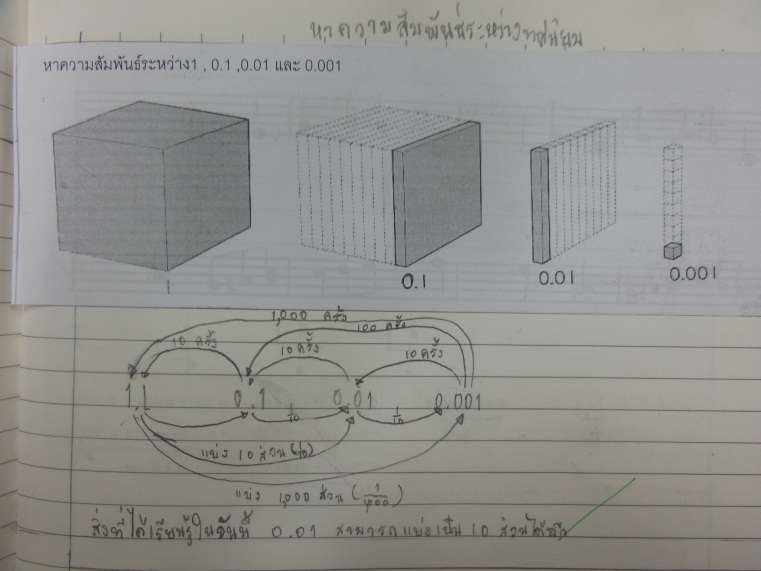 หาความสัมพันธ์ระหว่างทศนิยม
หาความสัมพันธ์ระหว่าง1 , 0.1 ,0.01 และ 0.001
1 0.1 0.01 0.001
1,000 ครั้ง
100 ครั้ง
10 ครั้ง 10 ครั้ง 10 ครั้ง
1 0.1 0.01 0.001
1/10 1/10
แบ่ง 10 ส่วน
แบ่ง 1,000 ส่วน (1/1,000)
สิ่งที่ได้เรียนรู้ในวันนี้ 0.01 สามารถแบ่งเป็น 10 ส่วนได้